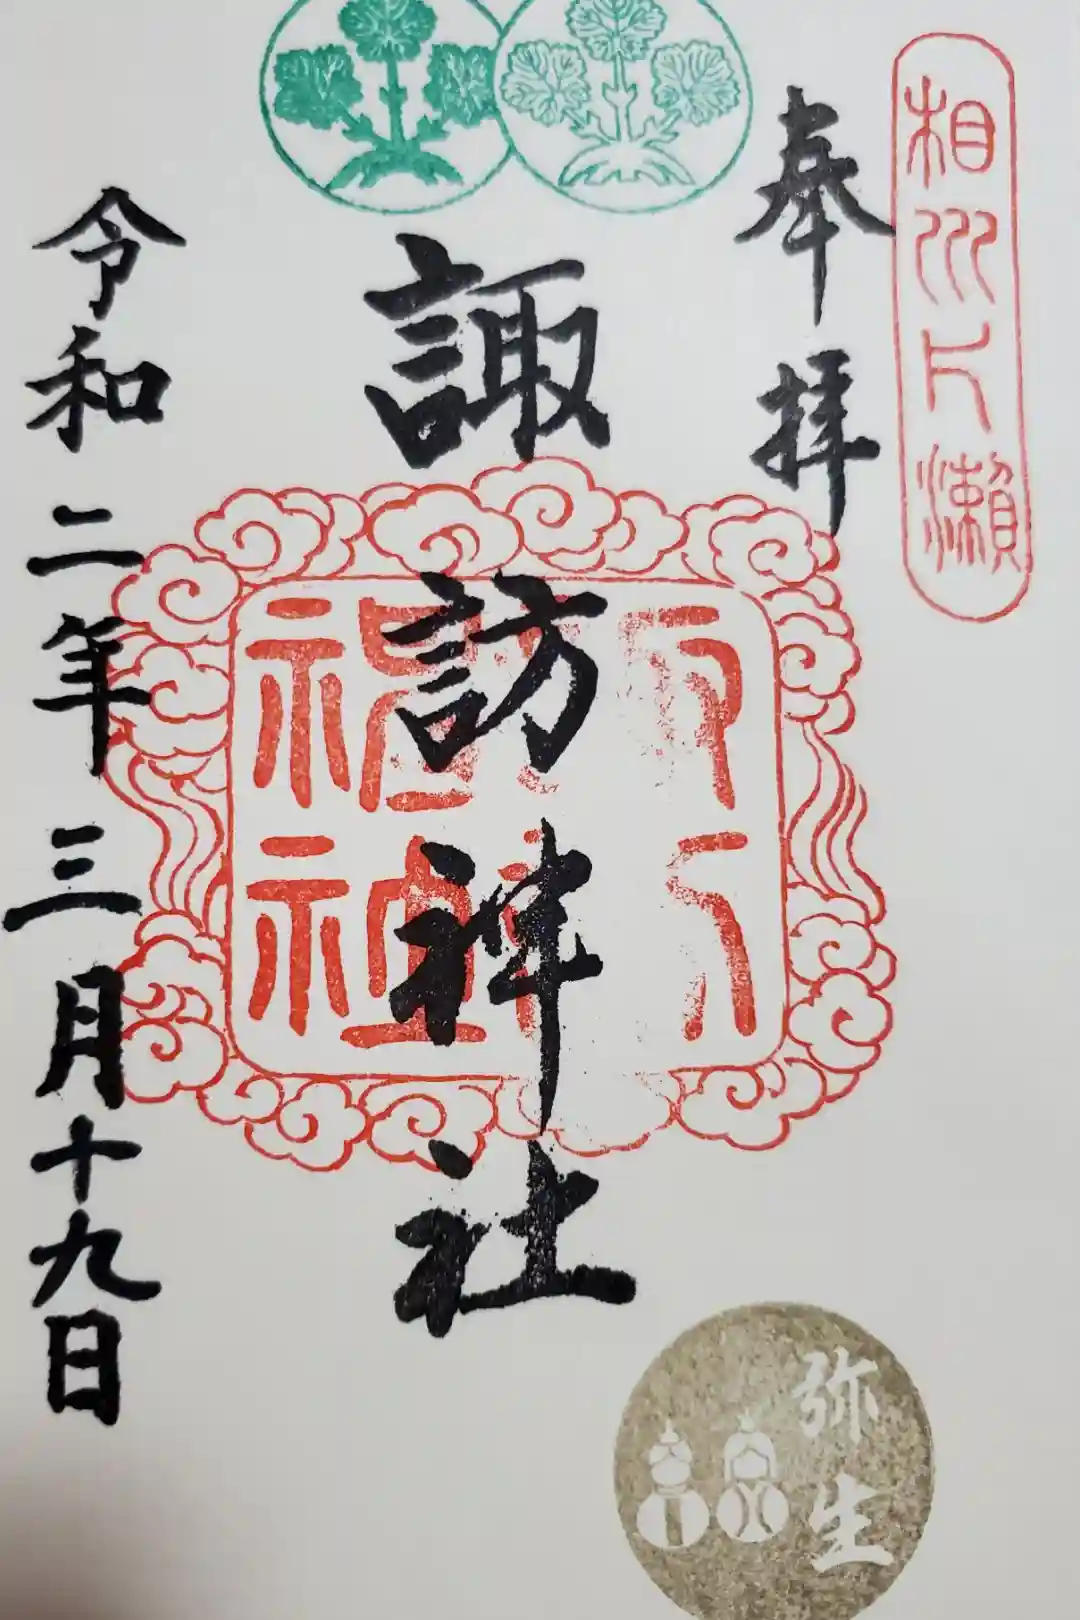 相州片瀬
奉拝
諏訪神社
令和二年三月十九日
弥生